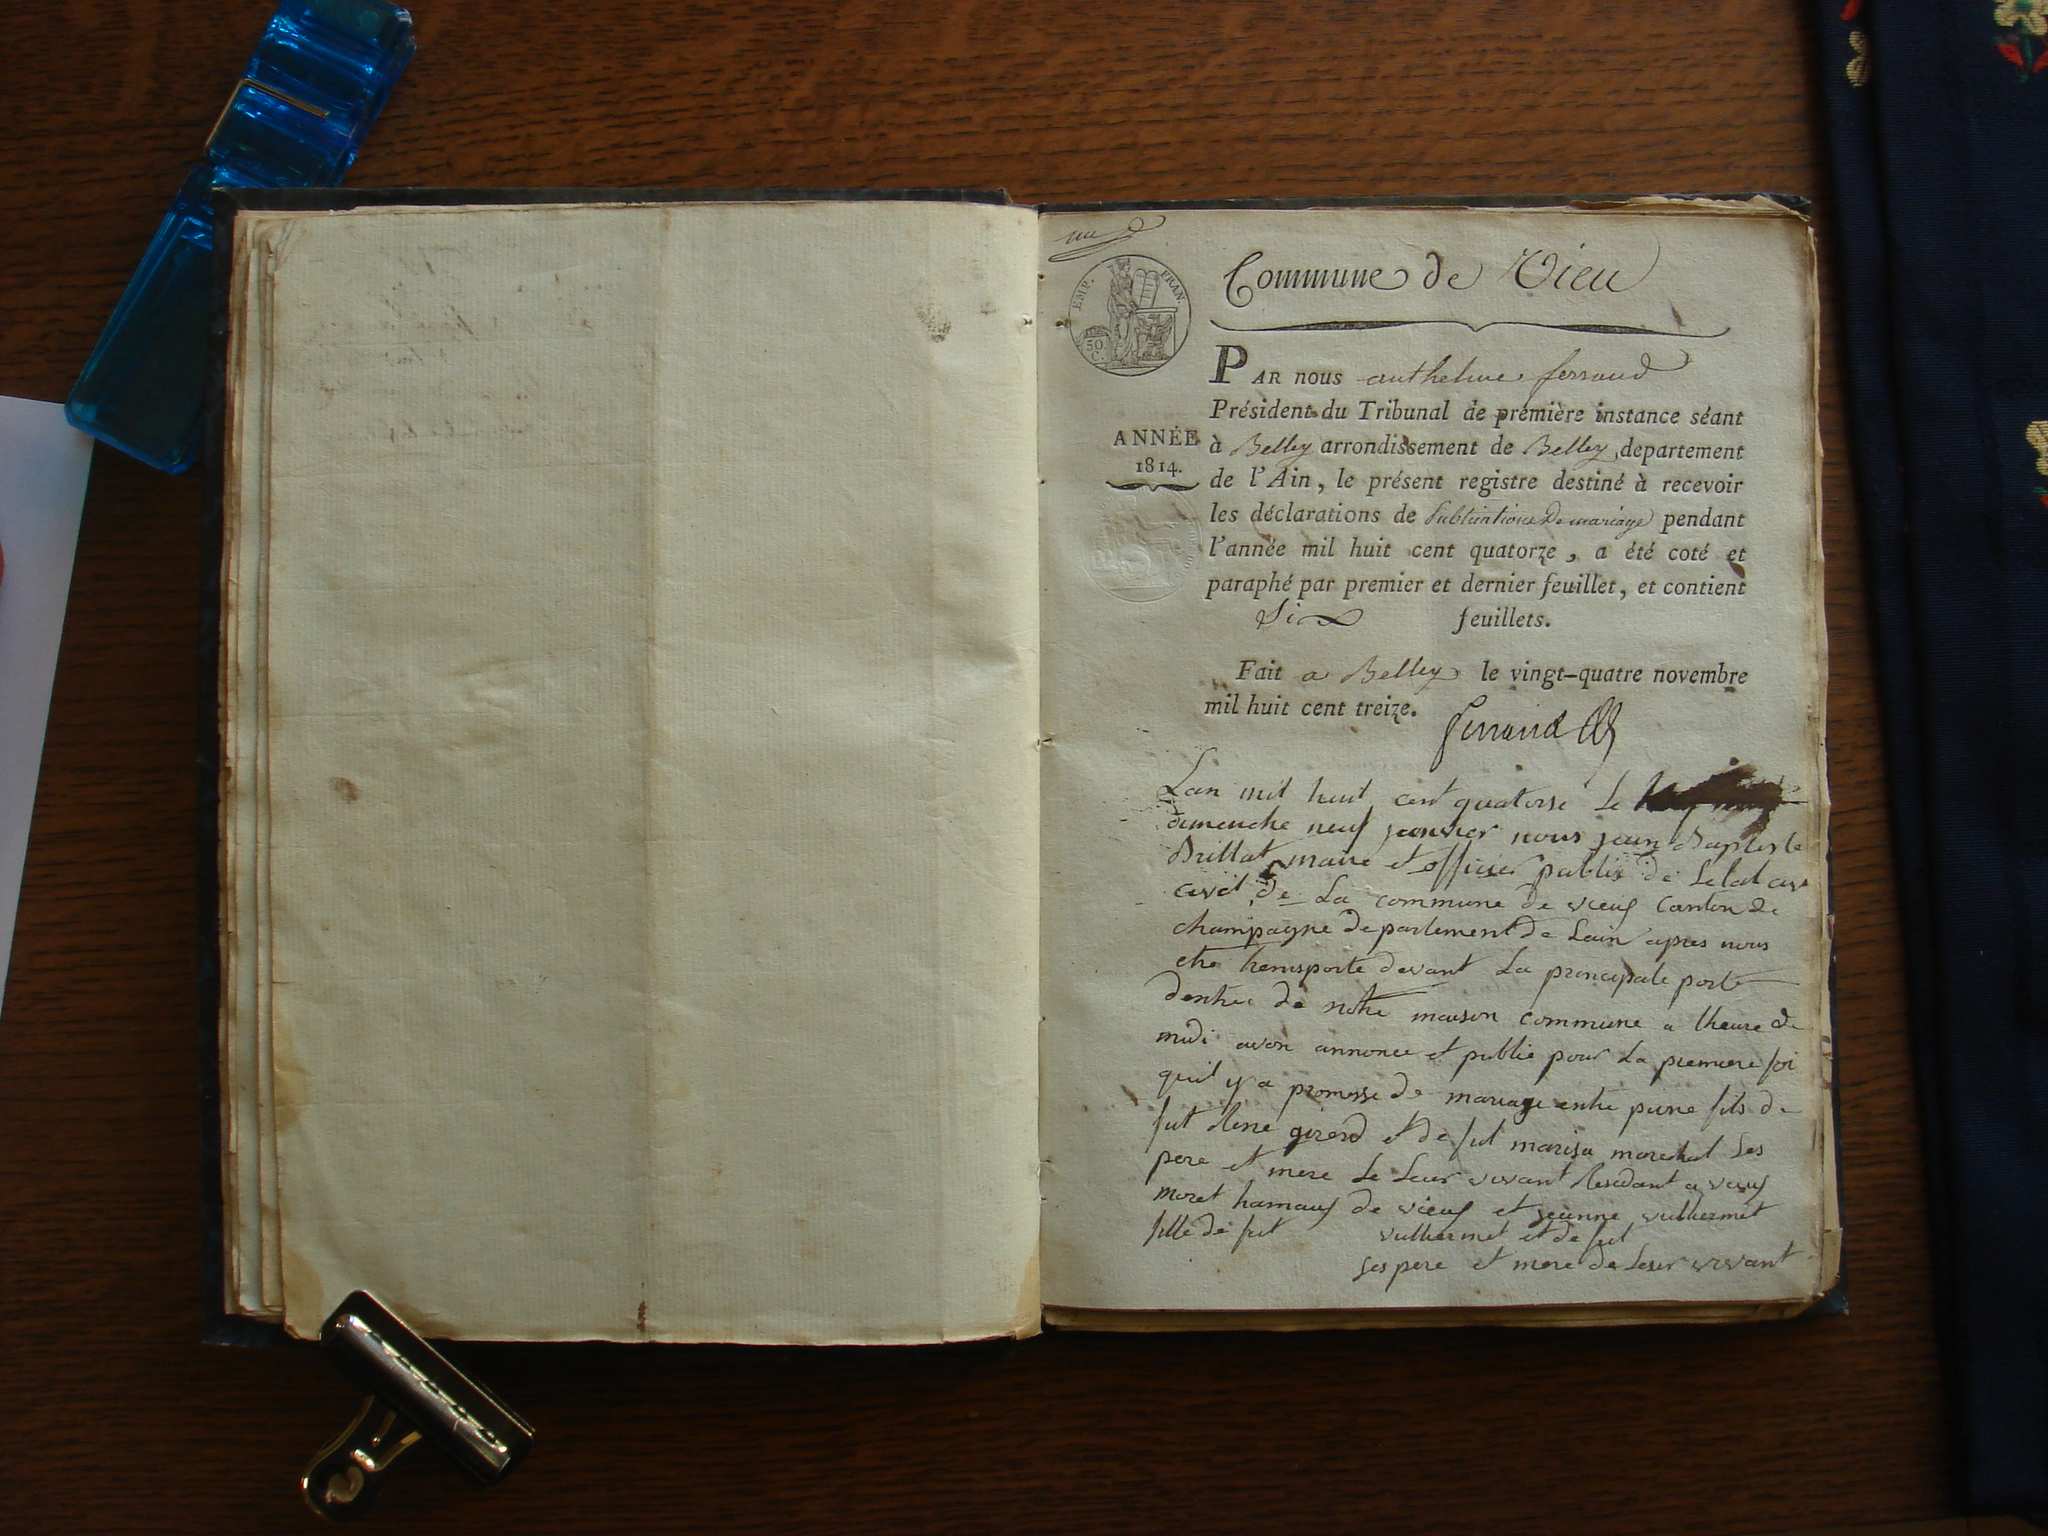 une
EMP. FRAN.
50
C.
Commune de Vieu
PAR nous anthelme ferrand
Président du Tribunal de première instance séant
ANNÉE
1814.
à Belley arrondissement de Belley, departement
de l'Ain, le présent registre destiné à recevoir
les déclarations de Publications de mariage pendant
l'année mil huit cent quatorze, a été coté et
paraphé par premier et dernier feuillet, et contient
Six feuillets.
Fait a Belley le vingt-quatre novembre
mil huit cent treize.
ferrand
Lan mil huit cent quatorse Le
dimenche neuf jeanvier nous jean Baptiste
Brillat maire et officier public de Lelat
civil de La commune de vieuf Canton de
champagne departement de Lain apres nous
etre transporte devant La principale porte
dentree de notre maison commune a lheure de
midi avon annonce et publie pour La premiere foi
quil y a promesse de mariage entre pierre fils de
fut Rene girerd et de fut marisa marechal Ses
pere et mere de Leur vivant Residant a vieuf
moret hamauf de vieuf et jeanne vulliermet
fille de fut vulliermet et de fut
Ses pere et mere de Leser vivant